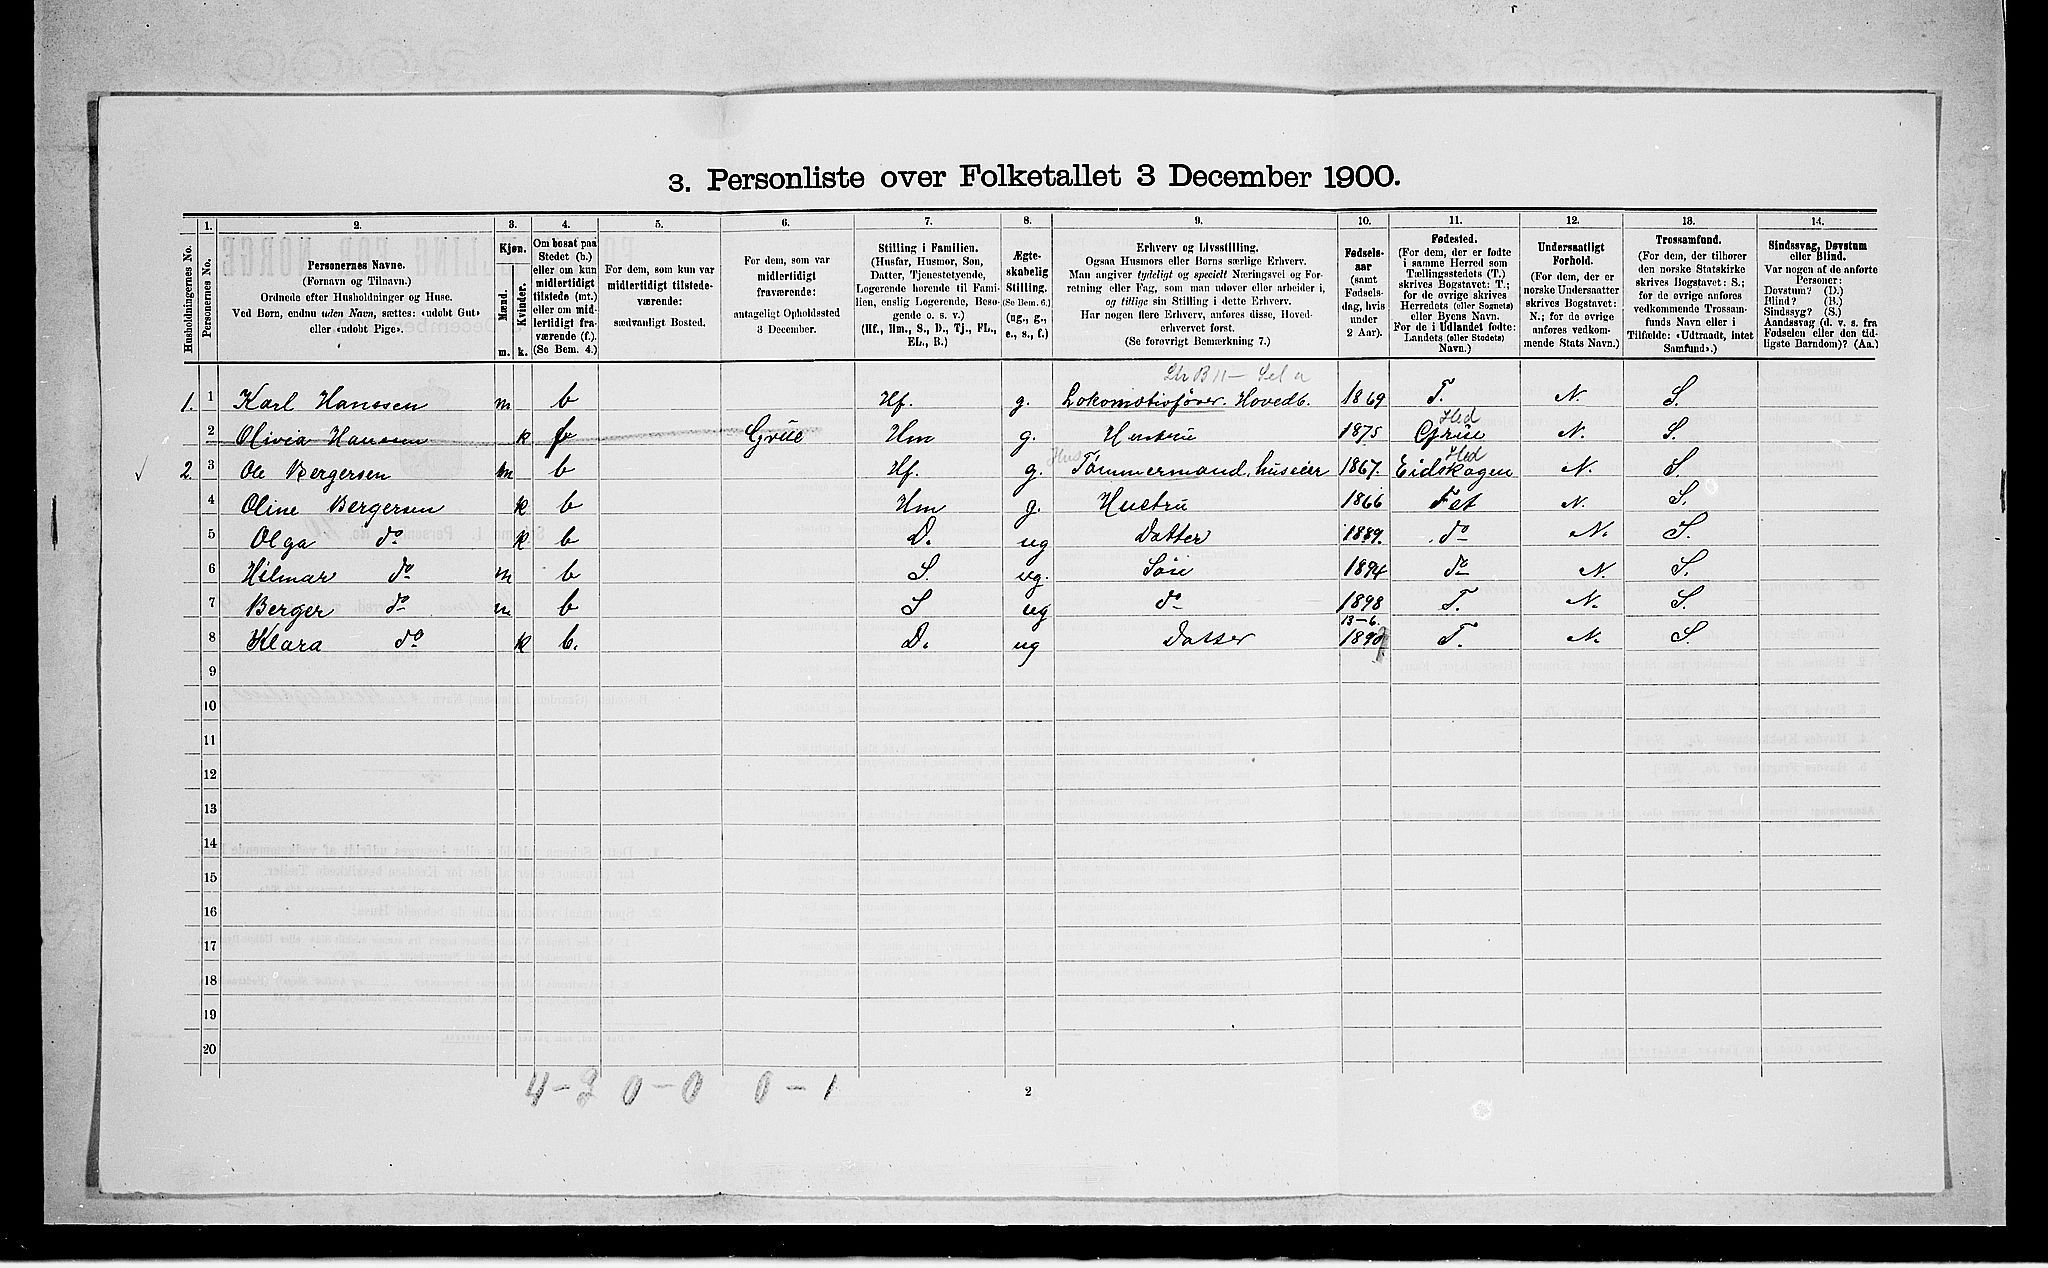 3. Personliste over Folketallet 3 December 1900.
1. 2. 3. 4. 5. 6. 7. 8. 9. 10. 11. 12. 13. 14.
Husholdningernes No.
Personernes No.
Personernes Navne.
(Fornavn og Tilnavn.)
Ordnede efter Husholdninger og Huse.
Ved Børn, endnu uden Navn, sættes: «udøbt Gut»
eller «udøbt Pige».
Kjøn.
Mænd.
Kvinder.
m. k.
Om bosat paa
Stedet (b.)
eller om kun
midlertidigt
tilstede (mt.)
eller om mid-
lertidigt fra-
værende (f.).
(Se Bem. 4.)
For dem, som kun var
midlertidigt tilstede-
værende:
sædvanligt Bosted.
For dem, som var
midlertidigt
fraværende:
antageligt Opholdssted
3 December.
Stilling i Familien.
(Husfar, Husmor, Søn,
Datter, Tjenestetyende,
Logerende hørende til Fami-
lien, enslig Logerende, Besø-
gende o. s. v.)
(Hf., Hm., S., D., Tj., FL.,
EL., B.)
Ægte-
skabelig
Stilling.
(Se Bem. 6.)
(ug., g.,
e., s., f.)
Erhverv og Livsstilling.
Ogsaa Husmors eller Børns særlige Erhverv.
Man angiver tydeligt og specielt Næringsvei og For-
retning eller Fag, som man udøver eller arbeider i,
og tillige sin Stilling i dette Erhverv.
Har nogen flere Erhverv, anføres disse, Hoved-
erhvervet først.
(Se forøvrigt Bemærkning 7.)
Fødsels-
aar
(samt
Fødsels-
dag, hvis
under
2 Aar).
Fødested.
(For dem, der er fødte
i samme Herred som
Tællingsstedets (T.)
skrives Bogstavet: T.;
for de øvrige skrives
Herredets (eller Sognets)
eller Byens Navn.
For de i Udlandet fødte:
Landets (eller Stedets)
Navn.)
Undersaatligt
Forhold.
(For dem, der er
norske Undersaatter
skrives Bogstavet:
N.; for de øvrige
anføres vedkom-
mende Stats Navn.)
Trossamfund.
(For dem, der tilhører
den norske Statskirke
skrives Bogstavet: S.;
for de øvrige anføres
vedkommende Trossam-
funds Navn eller i
Tilfælde: «Udtraadt, intet
Samfund».)
Sindssvag, Døvstum
eller Blind.
Var nogen af de anførte
Personer:
Døvstum? (D.)
Blind? (B.)
Sindssyg? (S.)
Aandssvag (d. v. s. fra
Fødselen eller den tid-
ligste Barndom)? (Aa.)
1. 1 Karl Hanssen m b Hf. g. Lokomotivfører. Hovedb. 1869 T. N. S.
Hed
2 Olivia Hansen k f Grue Hm g. Hustru 1875 Grue N. S.
Hed
✓ 2. 3 Ole Bergersen m b Hf. g. Hus Tømmermand, huseier 1867. Eidskogen N. S.
4 Oline Bergersen k b Hm g. Hustru 1866 Fet N. S.
5 Olga do k b D. ug Datter 1889. do N. S.
6 Hilmar do m b S. ug. Søn 1894 do N. S.
7 Berger do m b S ug do 1898 T. N. S.
13-6.
8 Klara do k b. D. ug Datter 189 T. N. S.
9
10
11
12
13
14
15
16
17
18
19
20
4-2 0-0 0-1
2